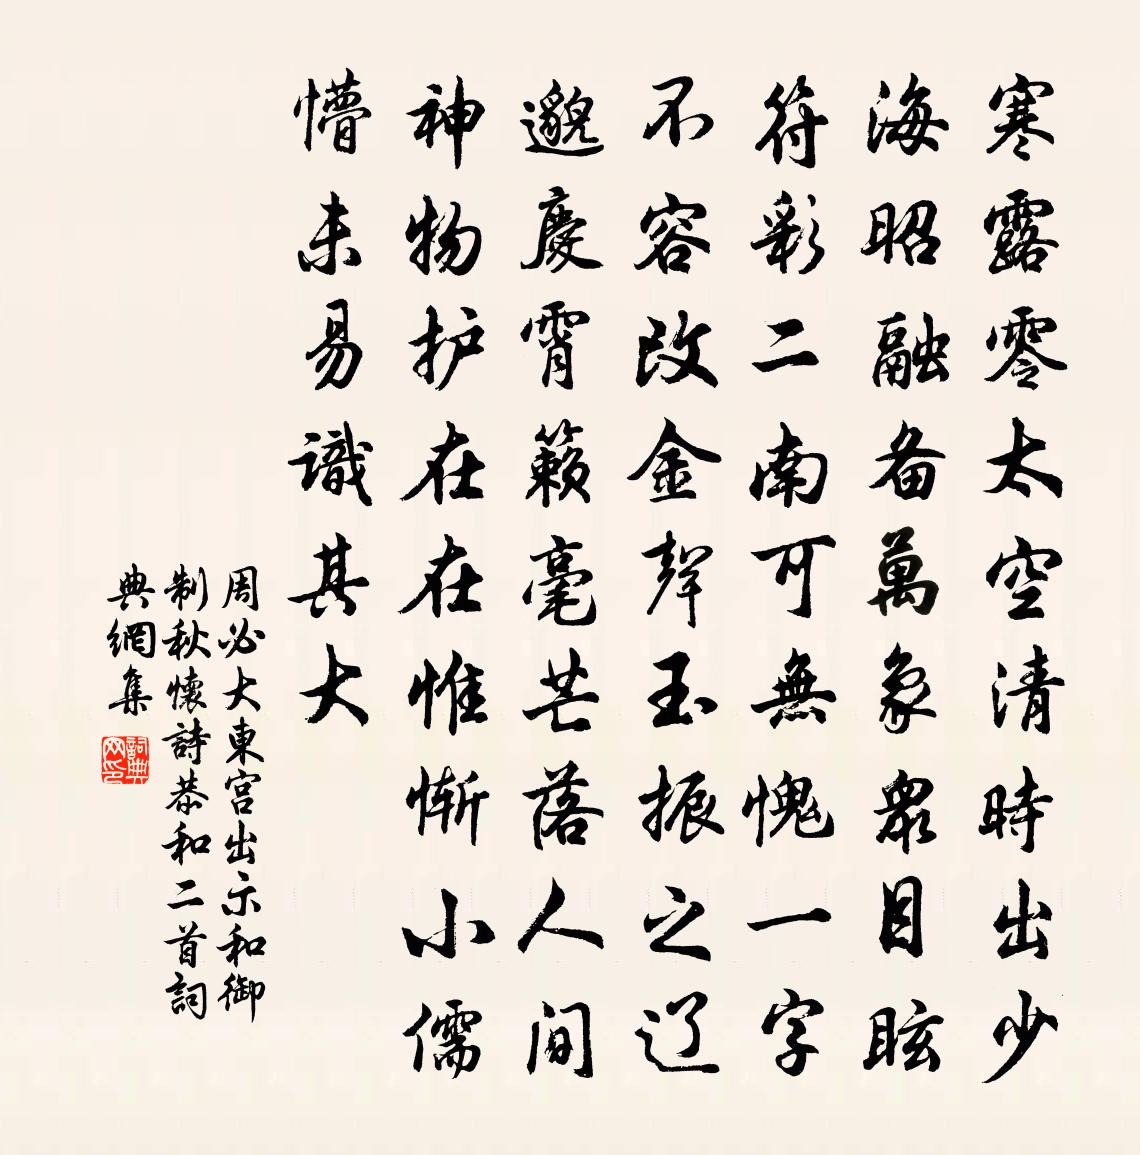 寒露零太空清時出少
海昭融备萬象眾目眩
符彩二南可無愧一字
不容改金聲玉振之辽
邈慶霄籁毫芒落人间
神物护在在惟惭小儒
懵未易識其大
周必大東宫出示和御
制秋懷詩恭和二首詞
典網集
詞典網印